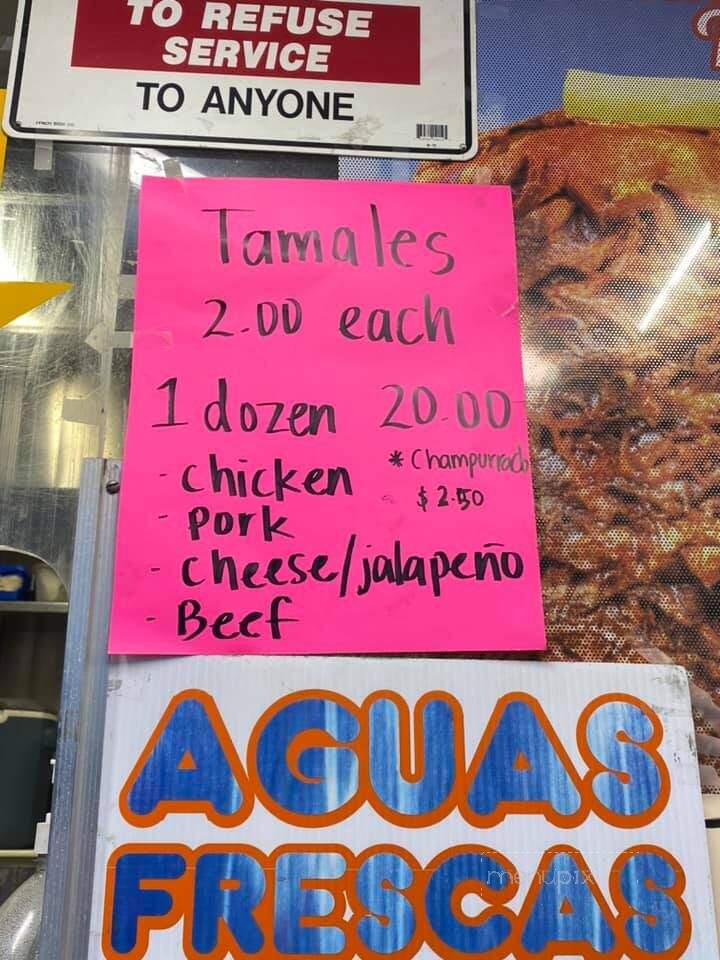 TO REFUSE
SERVICE
TO ANYONE
Tamales
2.00 each
1 dozen 20.00
* Champurrado
$ 2.50
- chicken
- Pork
- cheese/jalapeño
- Beef
AGUAS
FRESCAS
menupix